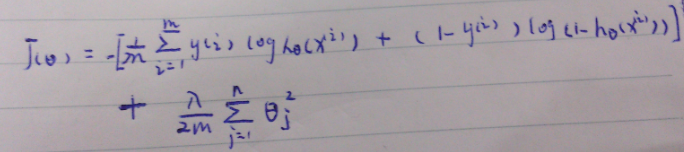 J(θ) = -[1/m ∑_{i=1}^{m} y^{(i)} log h_θ(x^{(i)}) + (1-y^{(i)}) log(1-h_θ(x^{(i)}))]
+ λ/2m ∑_{j=1}^{n} θ_j^2